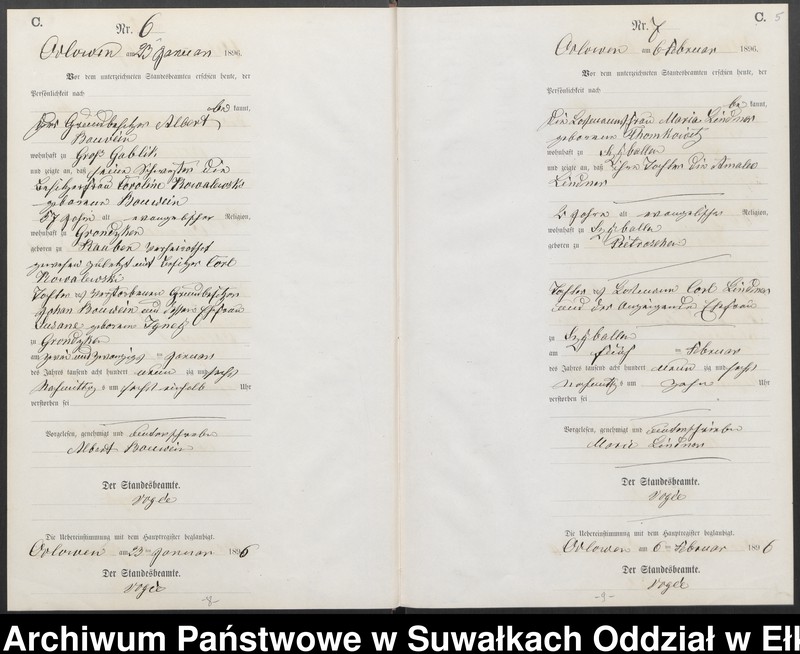 C.
Nr. 6
Orlowen am 23 Januar 1896.
Vor dem unterzeichneten Standesbeamten erschien heute, der
Persönlichkeit nach
be kannt,
der Grundbesitzer Albert
wohnhaft zu Groß Gablik
und zeigte an, daß seine Schwester die
Besitzerfrau Caroline Kowalewski
geborene
57 Jahre alt evangelischer Religion,
wohnhaft zu
geboren zu verheirathet
gewesen zuletzt mit Besitzer Carl
Kowalewski
Tochter des verstorbenen Grundbesitzer
Johan und dessen Ehefrau
Susane geborene
zu
am zwei und zwanzigsten Januar
des Jahres tausend acht hundert neun zig und sechs
Nachmittags um sechs einhalb Uhr
verstorben sei
Vorgelesen, genehmigt und unterschrieben
Albert
Der Standesbeamte.
Vogée
Die Uebereinstimmung mit dem Hauptregister beglaubigt.
Orlowen am 23 ten Januar 1896
Der Standesbeamte.
Vogée
-8-
C. 5
Nr. 7
Orlowen am 6 Februar 1896.
Vor dem unterzeichneten Standesbeamten erschien heute, der
Persönlichkeit nach
be kannt,
Die Losmannsfrau Maria Lindner
geborene
wohnhaft zu Szÿballen
und zeigte an, daß Ihre Tochter die Amalie
Lindner
Jahre alt evangelischer Religion,
wohnhaft zu Szÿballen
geboren zu Pietraschen
Tochter des Losmann Carl Lindner
und der Anzeigenden Ehefrau
zu Szÿballen
am fünf ten Februar
des Jahres tausend acht hundert neun zig und sechs
Nachmittags um zehn Uhr
verstorben sei
Vorgelesen, genehmigt und unterschrieben
Marie Lindner
Der Standesbeamte.
Vogée
Die Uebereinstimmung mit dem Hauptregister beglaubigt.
Orlowen am 6 ten Februar 1896
Der Standesbeamte.
Vogée
-9-
Archiwum Państwowe w Suwałkach Oddział w Ełk